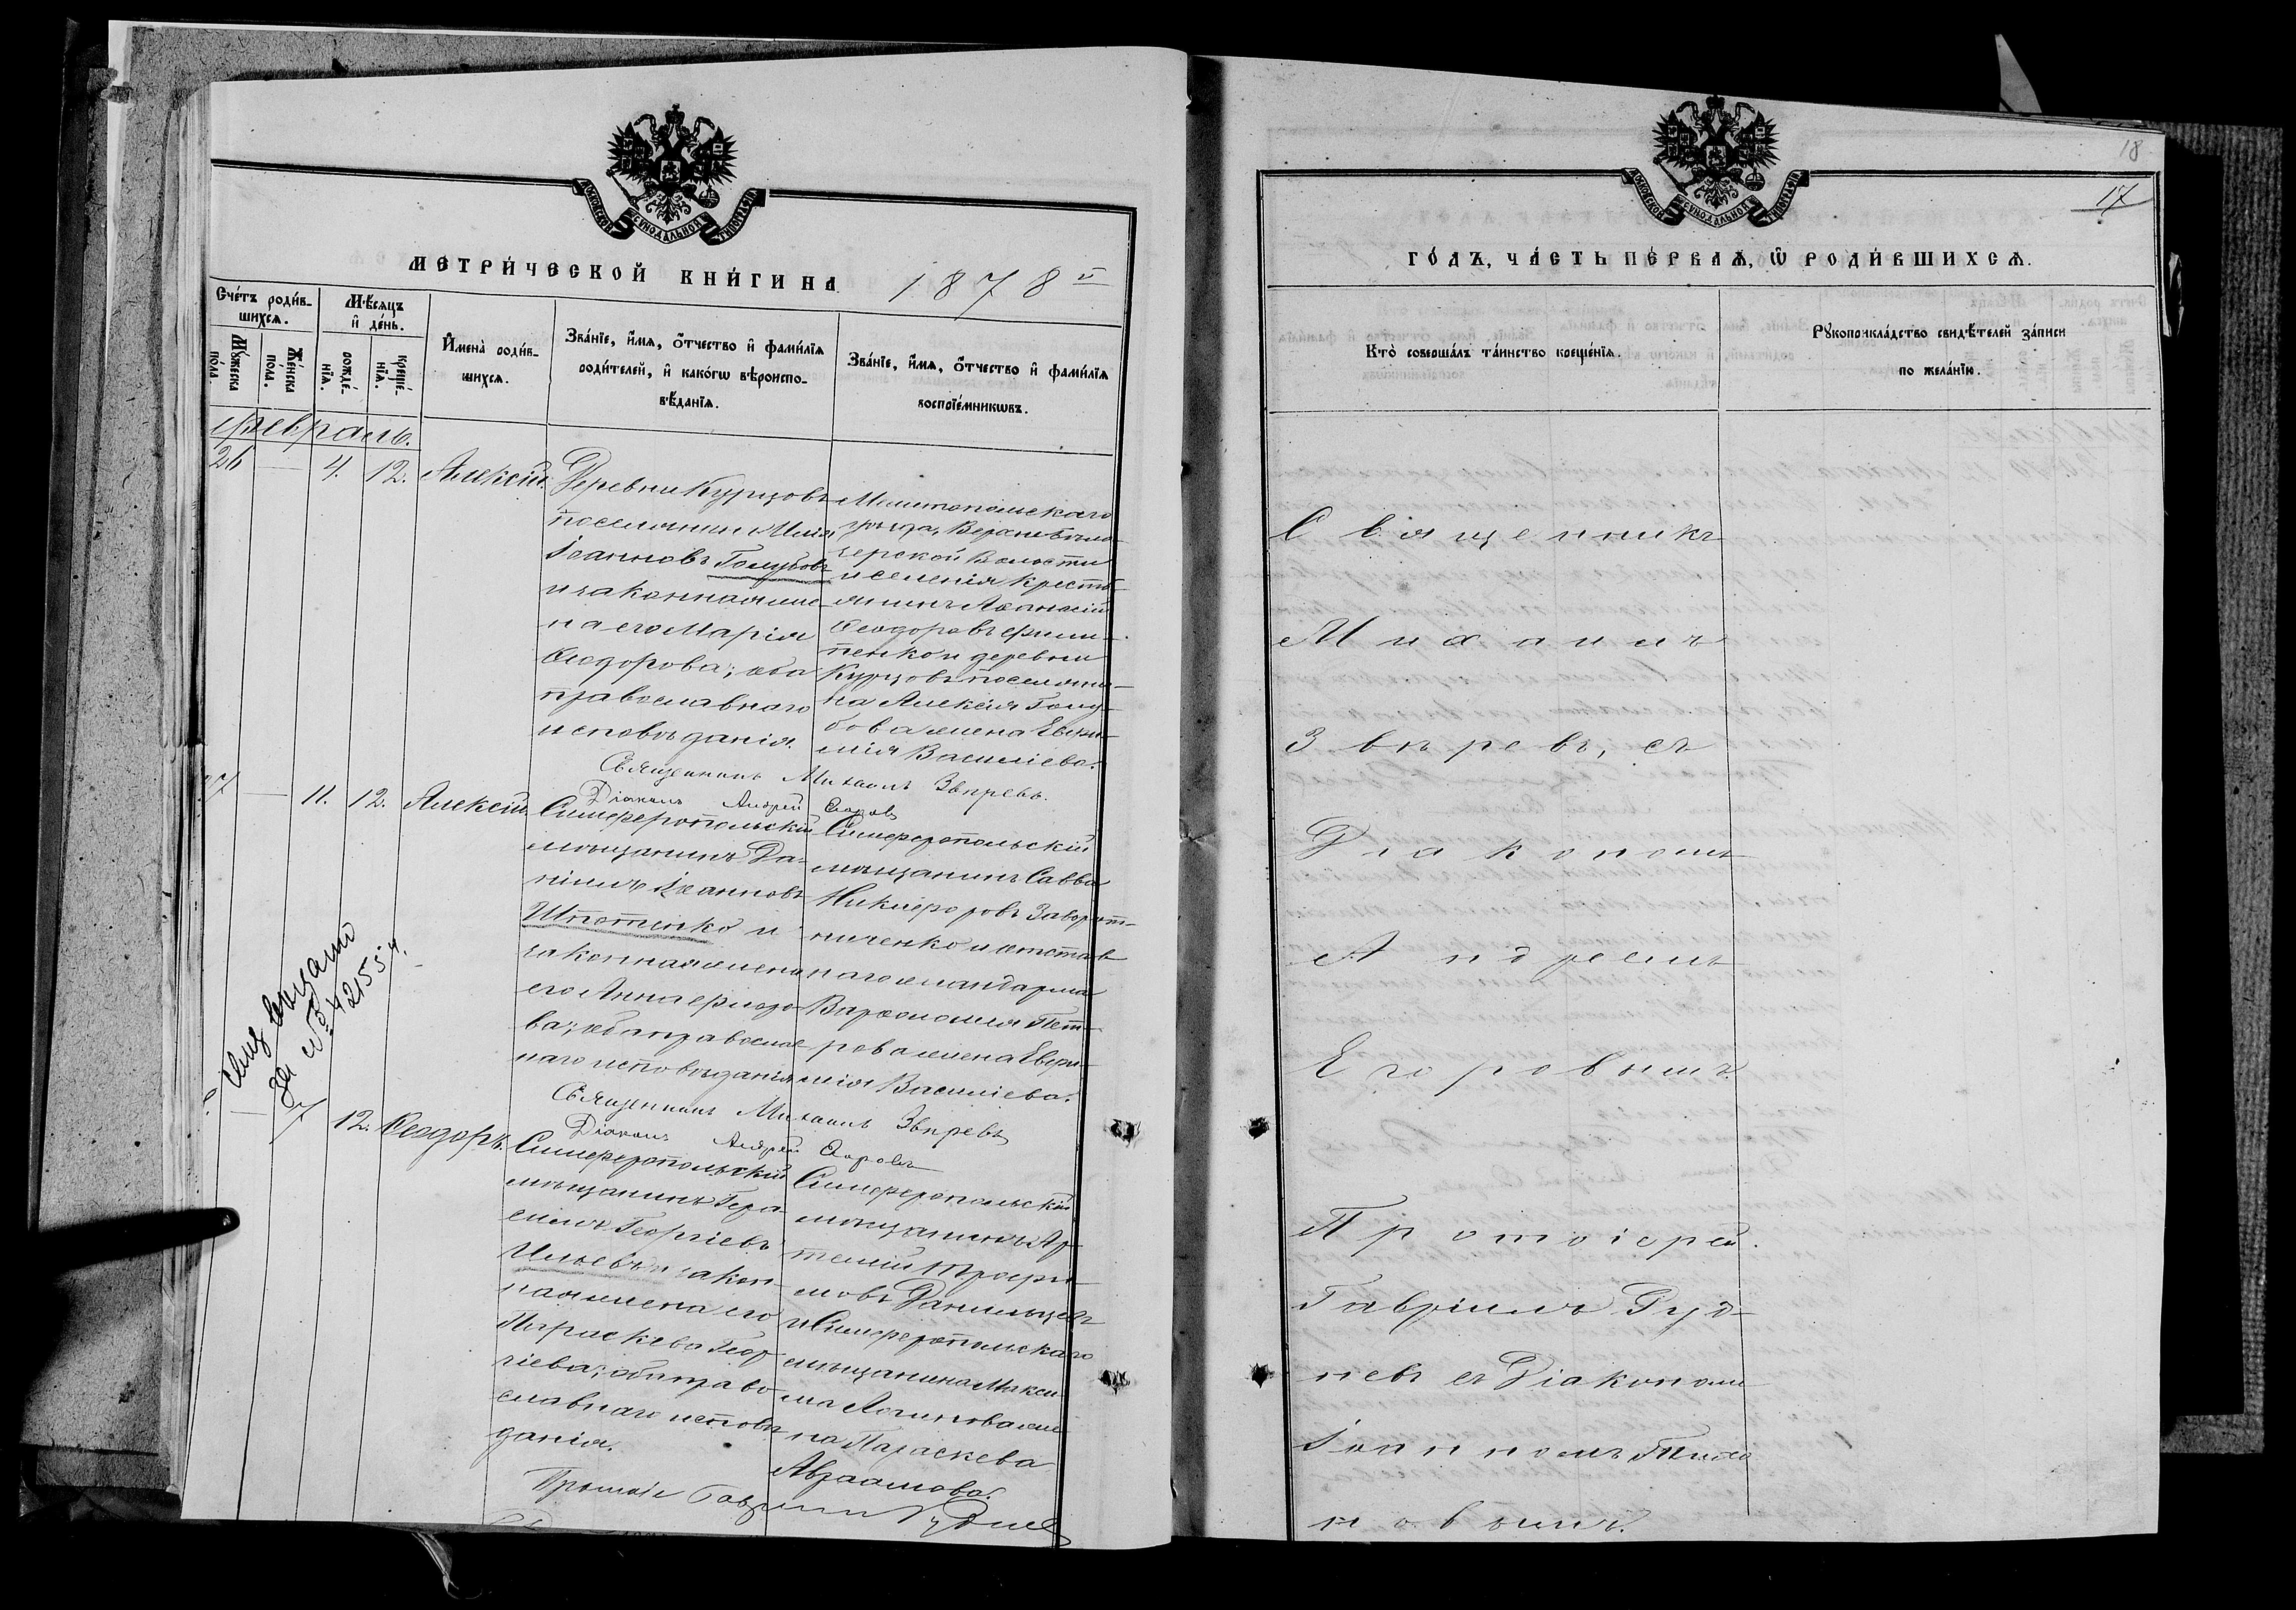 МОСКОВСКОЙ СѴНОДАЛЬНОЙ ТИПОГРАФІИ
МЕТРИ́ЧЕСКОЙ КНИ́ГИ НА 1878й
Сче́тъ роди́в-
шихсѧ.
Мѣ́сяцъ
и҆ де́нь.
И҆мена̀ роди́в-
шихсѧ.
Зва́нїе, и҆́мѧ, ѻ҆́тчество и҆ фами́лїѧ
роди́телей, и҆ како́гѡ вѣроиспо-
вѣ́данїѧ.
Зва́нїе, и҆́мѧ, ѻ҆́тчество и҆ фами́лїѧ
воспрїе́мникѡвъ.
Мꙋ́жеска
пола
Же́нска
по́ла.
рожде́-
нїѧ.
креще́-
нїѧ.
Февраль.
26 — 4. 12. Алексій.
Деревни Курцовъ
поселянин Илія
Іоанновъ Голубовъ
и законная же-
на его Марія
Ѳеодорова; оба
православнаго
исповѣданія.
Мелитопольскаго
уѣзда, Верхне бѣло-
зерской Волости
и селенія Кресть-
янинъ Аѳанасій
Ѳеодоровъ Фили-
пенко и деревни
Курцовъ поселяни-
на Алексія Голу-
бова жена Евфи-
мія Васильева.
Священникъ Михаилъ Звѣревъ.
Діаконъ Андрей Егоров
27 — 11. 12. Алексій.
Симферопольскій
мѣщанинъ Да-
ніилъ Іоанновъ
Ипотенко и
законная жена
его Анна Ѳеодо-
ва; оба православ-
наго исповѣданія
Симферопольскій
мѣщанинъ Савва
Никифоровъ Заворот-
ниченко и отстав-
наго жандарма
Варѳоломея Пет-
рова жена Евфи-
мія Васильева.
Священникъ Михаилъ Звѣревъ
Діаконъ Андрей Егоровъ
за № 4215
— 7 12. Ѳеодоръ.
Симферопольскій
мѣщанинъ Гера-
симъ Георгіевъ
Ильевъ и закон-
ная жена его
Параскева Геор-
гіева; оба право-
славнаго исповѣ-
данія.
Симферопольскій
мѣщанинъ Ар-
темій Трофи-
мовъ Данильцевъ
и Симферопольскаго
мѣщанина Макси-
ма Логинова же-
на Параскева
Авраамова.
Протоіе Гавріилъ Руднев
18
17
МОСКОВСКОЙ СѴНОДАЛЬНОЙ ТИПОГРАФІИ
ГО́ДЪ, ЧА́СТЬ ПЕ́РВАѦ, Ѡ҆ РОДИ́ВШИХСѦ.
Кто̀ соверша́лъ та́инство креще́нїѧ.
Рꙋкоприкла́дство свидѣ́телей за́писи
по жела́нїю.
Священникъ
Михаилъ
Звѣревъ, съ
Діакономъ
Андреемъ
Егоровымъ.
Протоіерей
Гавріилъ Руд-
невъ съ Діакономъ
Іоанномъ Тихо
новымъ.